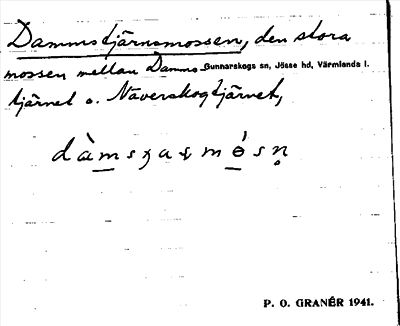 Dammstjärnsmossen, den stora
mossen mellan Damms-
Gunnarskogs sn, Jösse hd, Värmlands l.
tjärnet o. Näverskogtjärnet,
P. O. GRANÉR 1941.